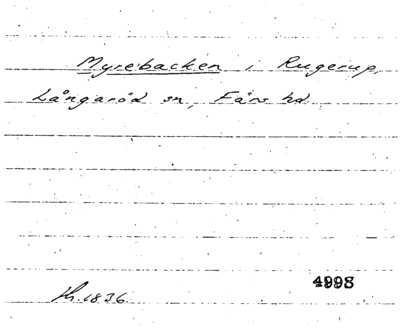 Myrebacken i Rugerup,
Långaröd sn, Färs hd.
4998
th. 1836